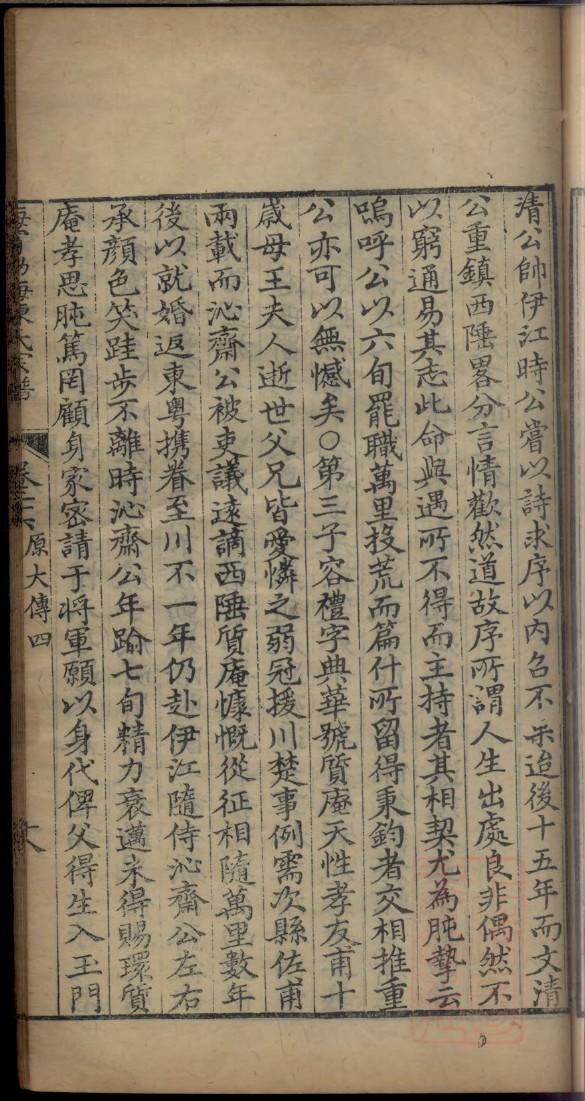 清公帥伊江時公嘗以詩求序以內召不果迨後十五年而文清
公重鎮西陲畧分言情歡然道故序所謂人生出處良非偶然不
以窮通易其志此命與遇所不得而主持者其相契尤為肫摯云
嗚呼公以六旬罷職萬里投荒而篇什所留得秉鈞者交相推重
公亦可以無憾矣○第三子容禮字典華號質庵天性孝友甫十
歲母王夫人逝世父兄皆愛憐之弱冠援川楚事例需次縣佐甫
兩載而沁齋公被吏議遠謫西陲質庵慷慨從征相隨萬里數年
後以就婚返東粵携眷至川不一年仍赴伊江隨侍沁齋公左右
承顏色笑跬步不離時沁齋公年踰七旬精力衰邁未得賜環質
庵孝思肫篤罔顧身家密請于將軍願以身代俾父得生入玉門
海陳氏宗譜
原大傳四